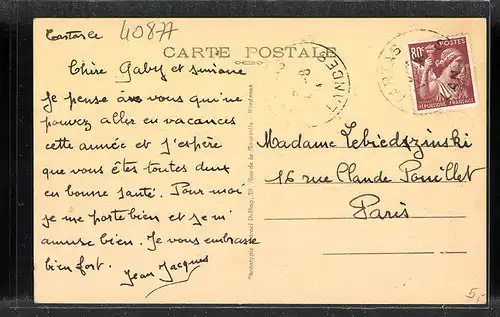 Tartas le
40877
CARTE POSTALE
Chère Gaby et simone
Je pense à vous qui ne
pouvez aller en vacances
cette année et j'espère
que vous êtes toutes deux
en bonne santé. Pour moi
je me porte bien et je m'
amuse bien. Je vous embrasse
bien fort. Jean Jacques
80c
POSTES
RÉPUBLIQUE FRANÇAISE
TARTAS
LANDES
Madame Lebiedszinski
16 rue Claude Pouillet
Paris
5,-